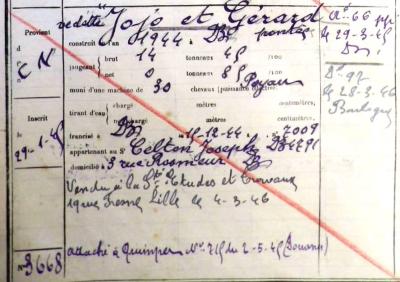 vedette "Jojo et Gérard"
Provient
d
CN
construit en l'an 1944 Dz pontée
jaugeant brut 14 tonneaux 45 /100
net 0 tonneaux 85 /100
muni d'une machine de 30 chevaux (puissance
tirant d'eau chargé mètres centimètres,
chargé mètres centimètres.
Inscrit
le
29-1-45
francisé à Dz le 15-12-44 n° 7009
appartenant au Sr Celton Joseph Dz
domicilié à 3 rue Rosmeur Dz
Vendu à la Sté Etudes et Travaux
19 rue Lille le 4-3-46
attaché à Quimper N° 715 du 2-5-45 (Douane)
N° 3668
N° 66
le 29-3-45
Dz
D° 92
le 28-3-46